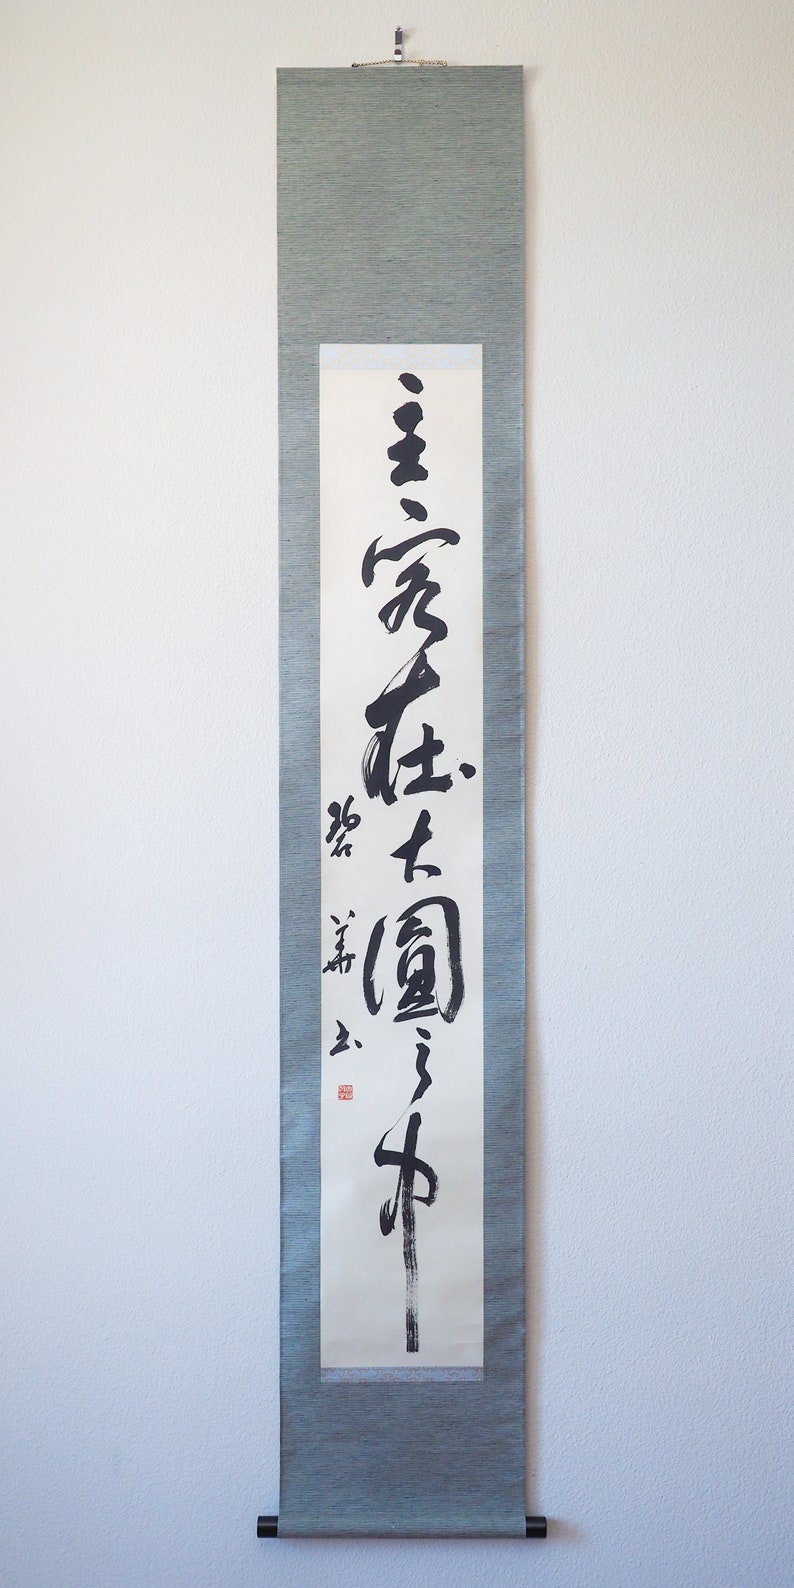 主客在大圓之中
碧華書